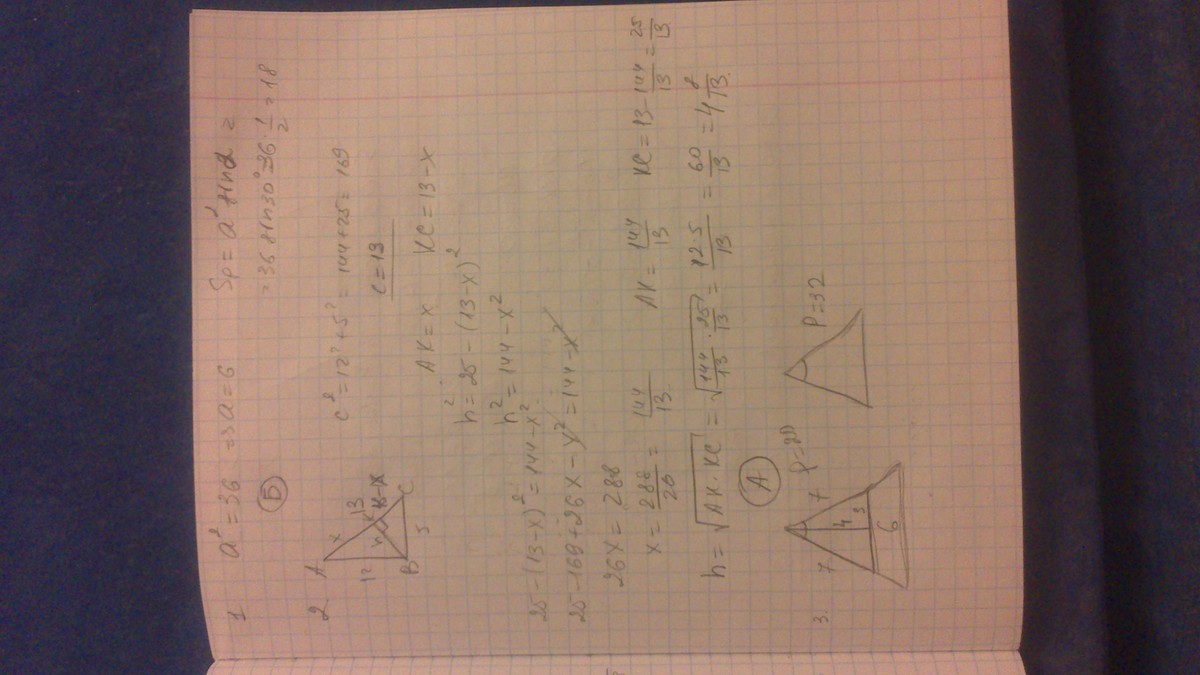 1 a² = 36 => a = 6 Sp = a² sin α =
= 36 sin 30° = 36 · 1/2 = 18
Б
2. A x 13 12 h K 13-x B 5 C
c² = 12² + 5² = 144 + 25 = 169
c = 13
AK = x KC = 13 - x
h² = 25 - (13 - x)²
h² = 144 - x²
25 - (13 - x)² = 144 - x²
25 - 169 + 26x - x² = 144 - x²
26x = 288
x = 288/26 = 144/13 AK = 144/13 KC = 13 - 144/13 = 25/13
h = √AK · KC = √144/13 · 25/13 = 12 5/13 = 60/13 = 4 8/13
А
3. 7 7 4 3 6 P = 20 P = 32